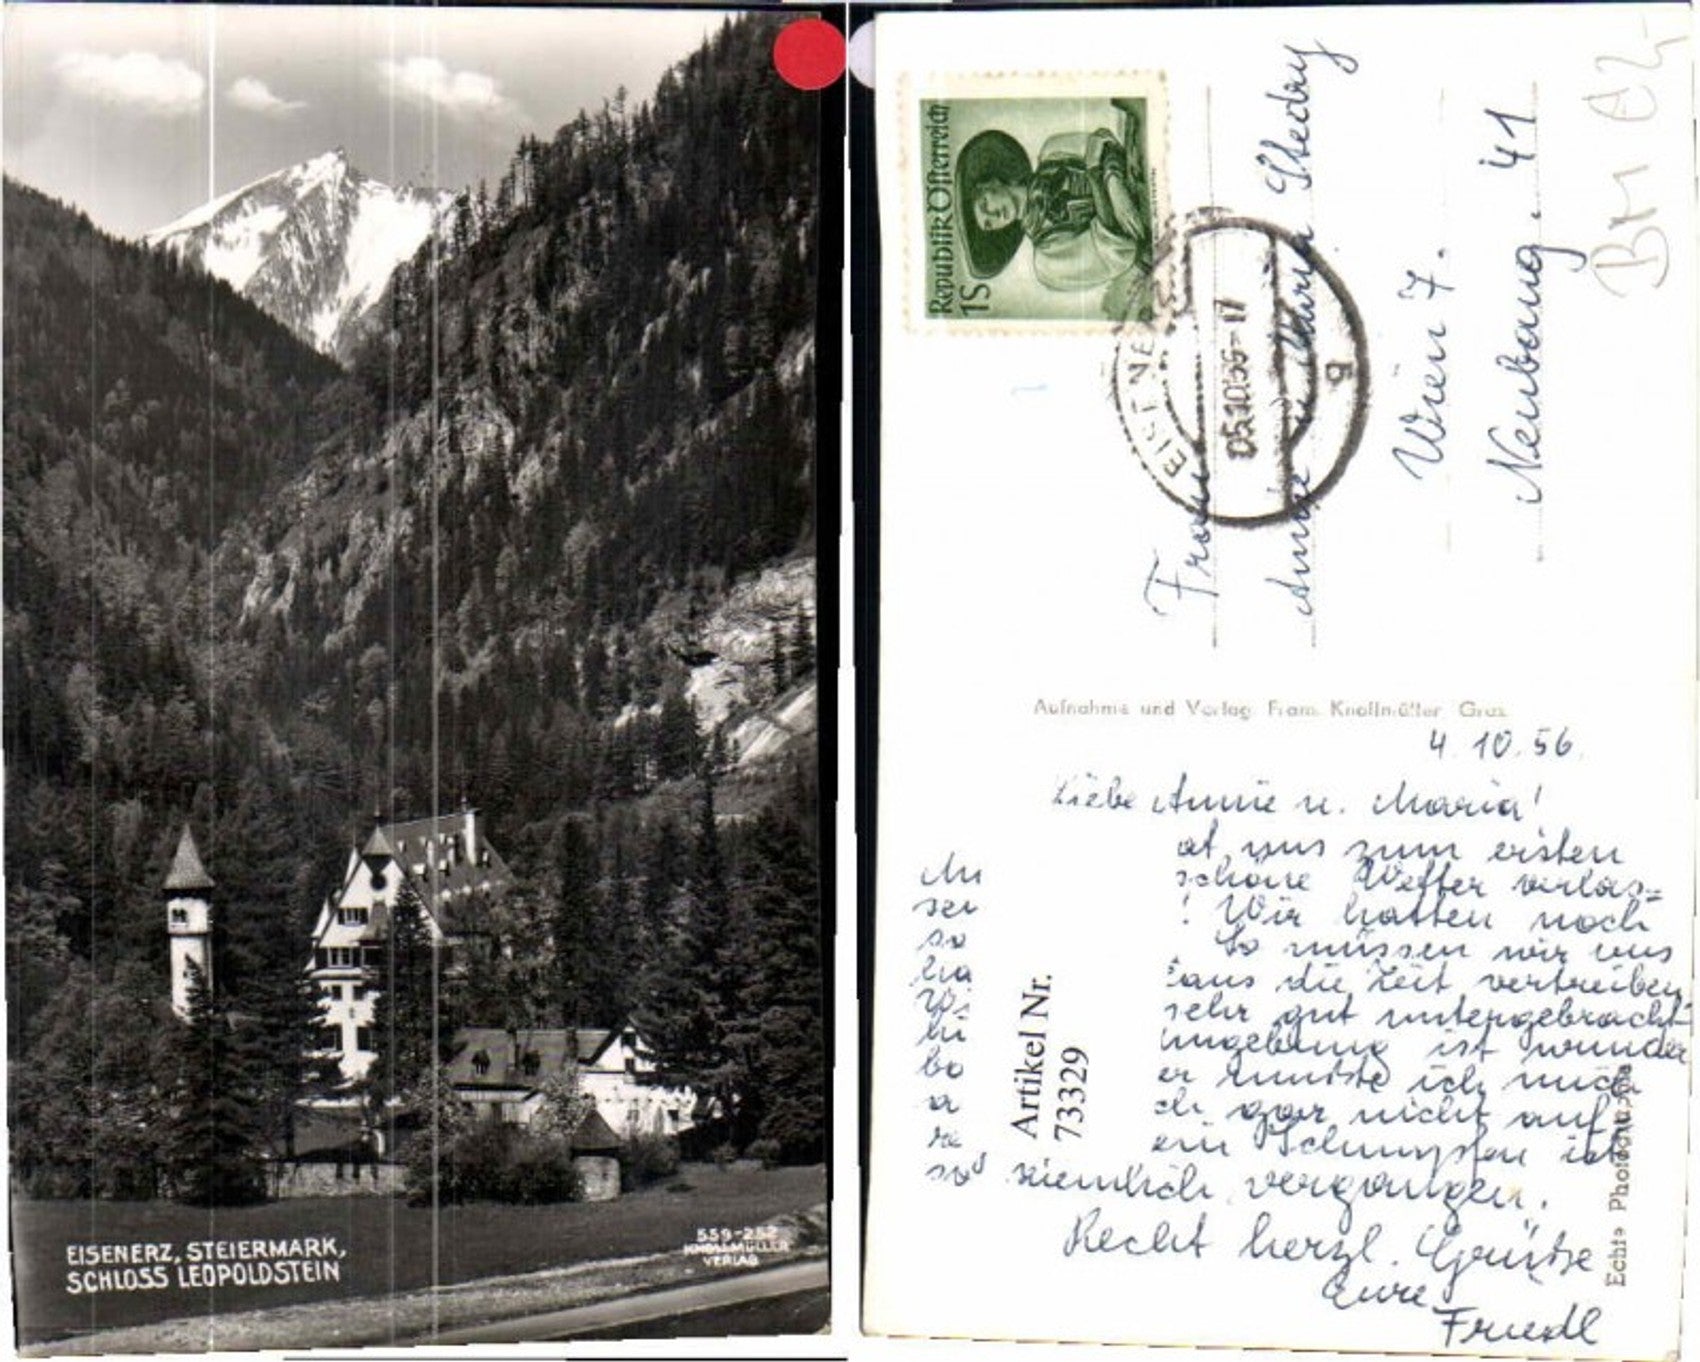 EISENERZ, STEIERMARK,
SCHLOSS LEOPOLDSTEIN
559-252
KNOLLMÜLLER
VERLAG
Republik Österreich
1S
EISENE
05.10.56-17
g
Frau
Anna u. Maria
Wien 7.
Neubaug. 41
BM A2,-
Aufnahme und Verlag Frans Knollmüller Graz
4.10.56.
Liebe Annie u. Maria!
at uns zum ersten
schöne Wetter verlas=
sen ! Wir hatten noch
so So müssen wir uns
aus die Zeit vertreiben
Wi sehr gut untergebracht
Umgebung ist wunder
bo er musste ich mich
a ch gar nicht auf
re ein Schnupfen ist
so ziemlich vergangen.
Recht herzl. Grüsse
Eure
Friedl
Artikel Nr.
73329
Echte Photographie